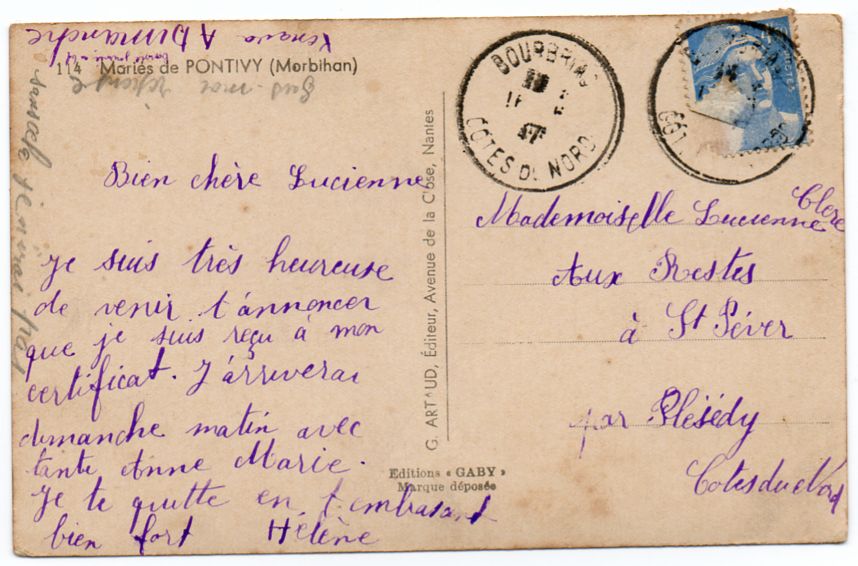 A Dimanche
114 Mariés de PONTIVY (Morbihan)
Bien chère Lucienne
Je suis très heureuse
de venir t'annoncer
que je suis reçu à mon
certificat. J'arriverai
dimanche matin avec
tante Anne Marie.
Je te quitte en t'embrasant
bien fort Hélène
G. ARTAUD, Éditeur, Avenue de la Close, Nantes
Editions « GABY »
Marque déposée
BOURBRIAC
16
47
COTES DU NORD
POSTES
Mademoiselle Lucienne Clere
Aux Restes
à St Péver
par Plésédy
Cotes du Nord